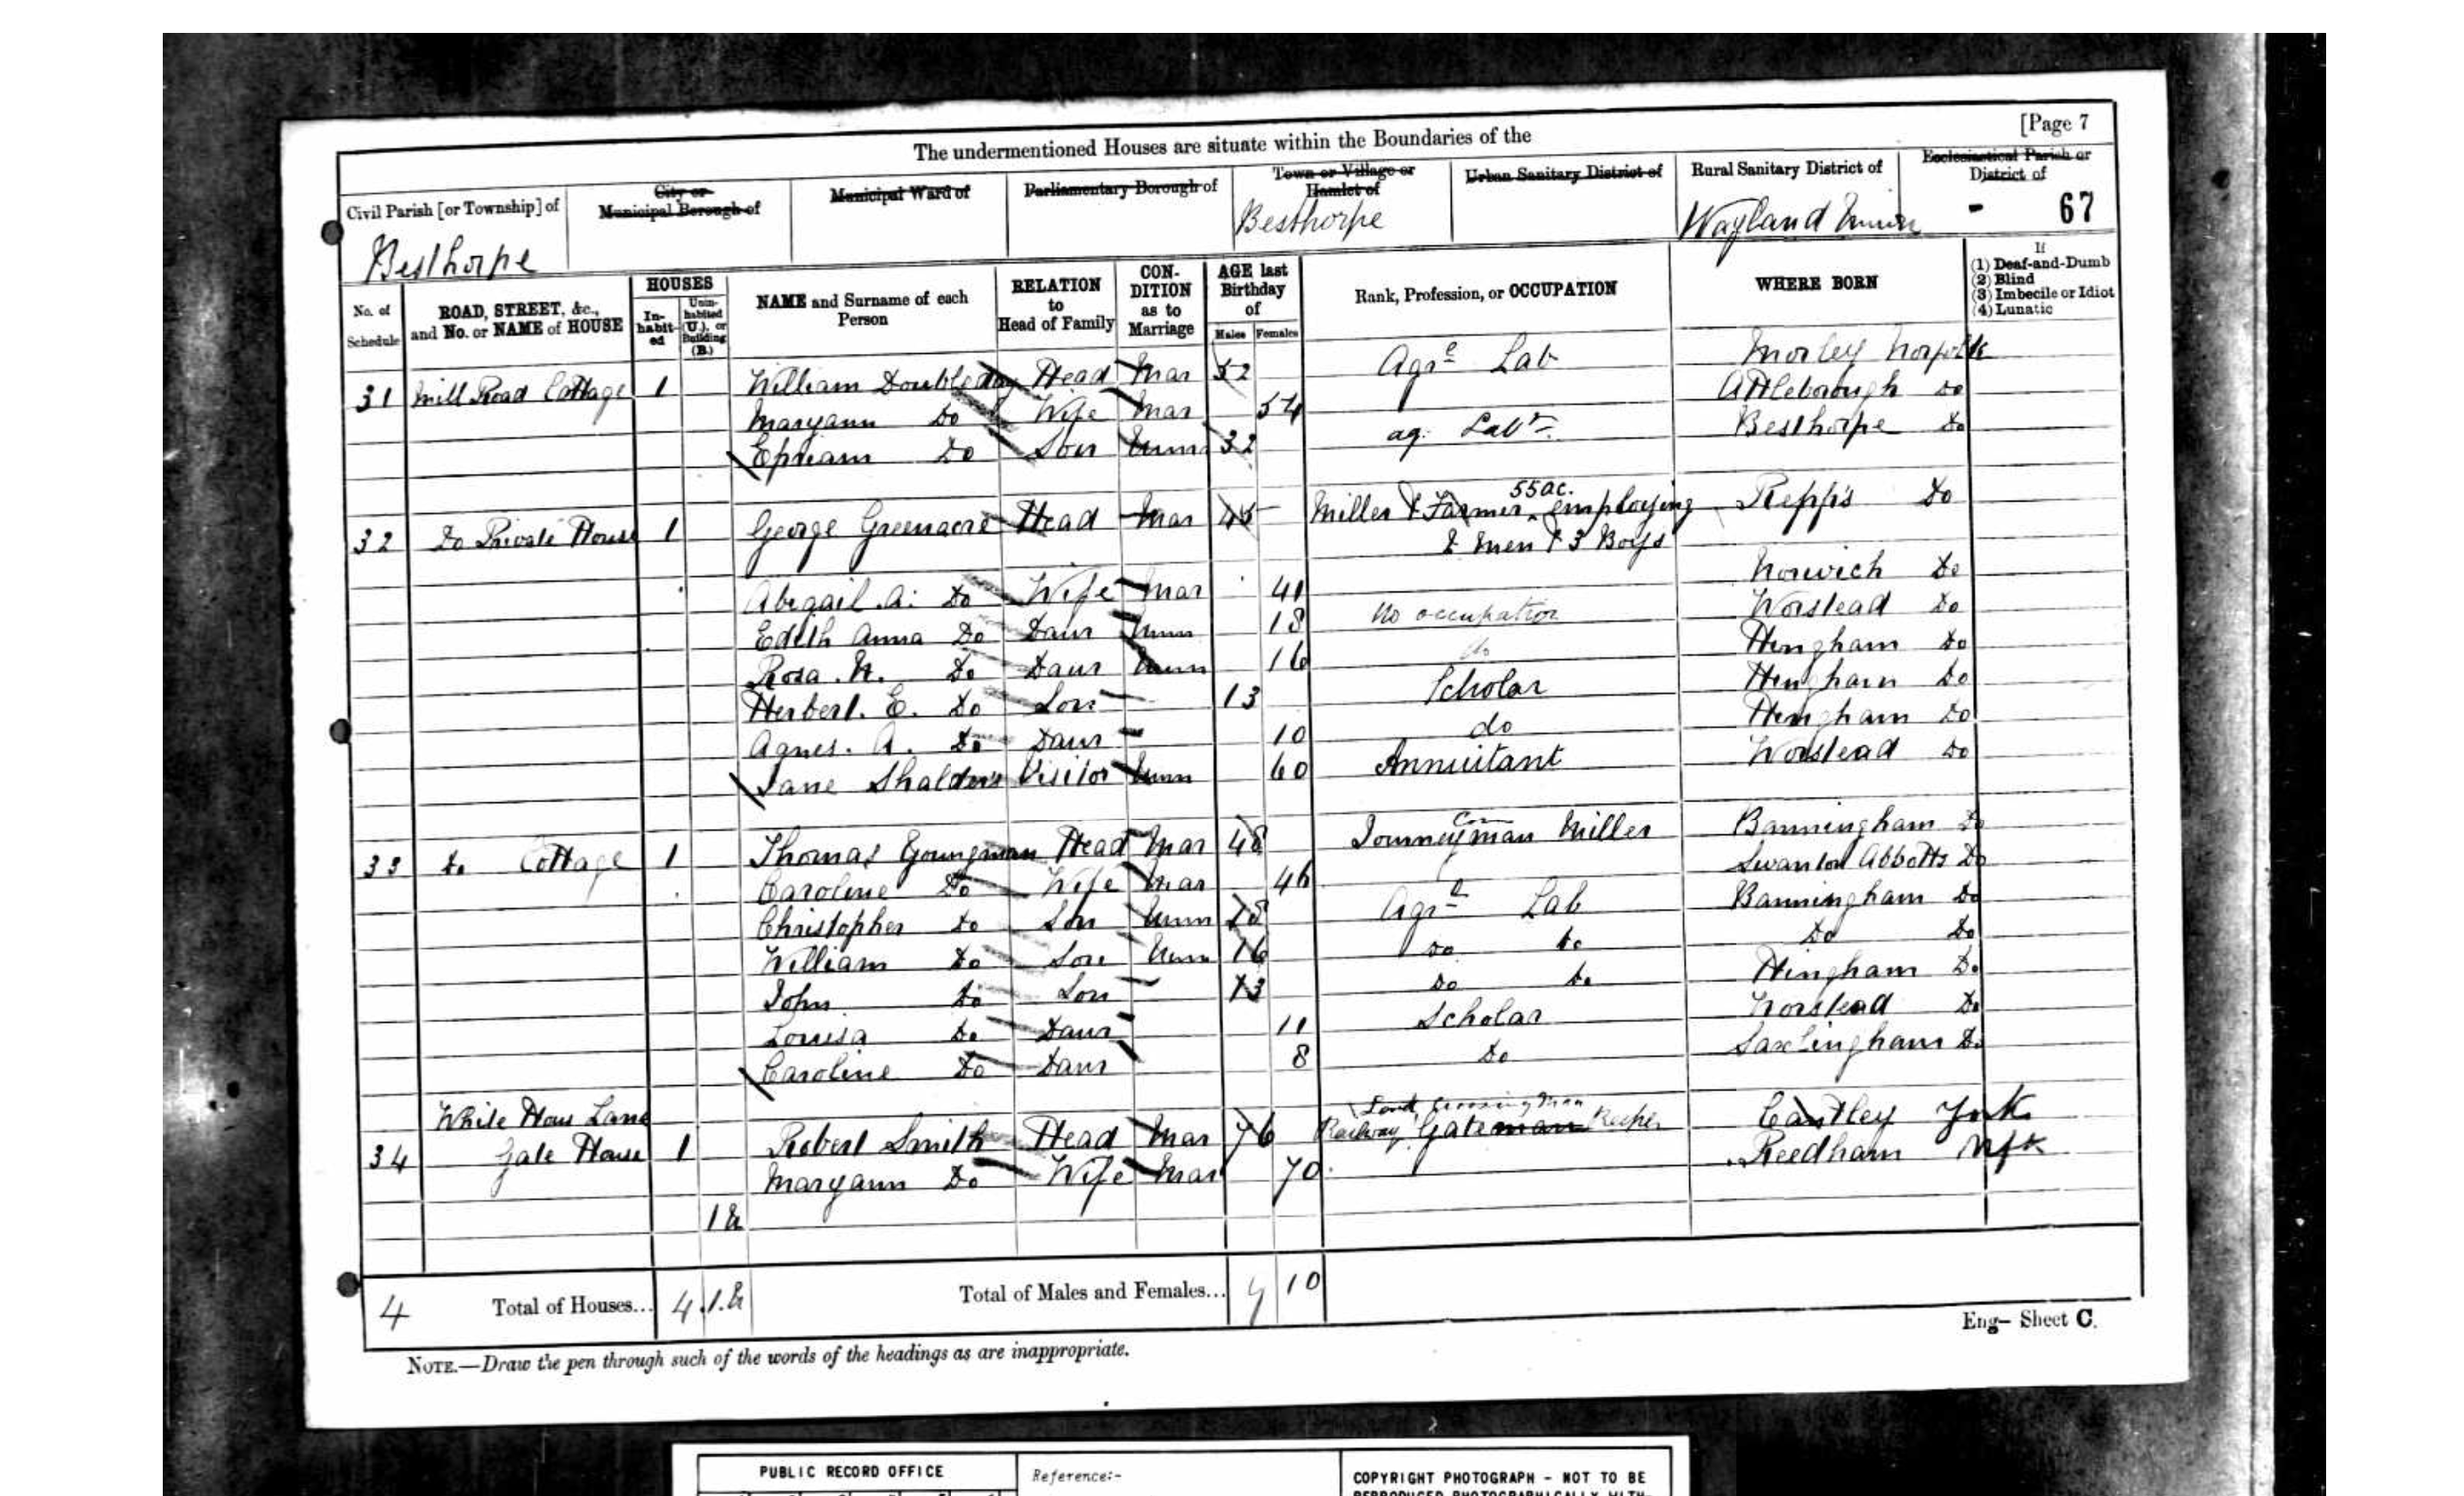 [Page 7
The undermentioned Houses are situate within the Boundaries of the
Civil Parish [or Township] of
City or Municipal Borough of
Municipal Ward of
Parliamentary Borough of
Town or Village or Hamlet of
Urban Sanitary District of
Rural Sanitary District of
Ecclesiastical Parish or District of
Besthorpe Besthorpe Wayland Union - 67
No. of Schedule
ROAD, STREET, &c., and No. or NAME of HOUSE
HOUSES
In-habit-ed
Unin-habited (U.), or Building (B.)
NAME and Surname of each Person
RELATION to Head of Family
CON-DITION as to Marriage
AGE last Birthday of
Males Females
Rank, Profession, or OCCUPATION
WHERE BORN
If
(1) Deaf-and-Dumb
(2) Blind
(3) Imbecile or Idiot
(4) Lunatic
31 Mill Road Cottage 1 William Doubleday Head Mar 52 Agrl Lab Morley Norfolk
Maryann Do Wife Mar 54 Attleborough Do
Epriam Do Son Unm 32 ag. Labr Besthorpe Do
32 Do Private House 1 George Greenacre Head Mar 45 Miller & Farmer 55ac. employing Repps Do
2 Men & 3 Boys
Abigail A. Do Wife Mar 41 Norwich Do
Edith Anna Do Daur Unm 18 No occupation Worstead Do
Rosa N. Do Daur Unm 16 do Hingham Do
Herbert. E. Do Son 13 Scholar Hingham Do
Agnes. A. Do Daur 10 do Hingham Do
Jane Shalders Visitor Unm 60 Annuitant Worstead Do
33 Do Cottage 1 Thomas Youngman Head Mar 48 Journeyman Corn Miller Banningham Do
Caroline Do Wife Mar 46 Swanton Abbotts Do
Christopher Do Son Unm 18 Agrl Lab Banningham Do
William Do Son Unm 16 Do Do Do Do
John Do Son 13 Do Do Hingham Do
Louisa Do Daur 11 Scholar Worstead Do
Caroline Do Daur 8 Do Saxlingham Do
White Hous Lane
34 Gate House 1 Robert Smith Head Mar 76 Railway Gateman Keeper Cantley York
Maryann Do Wife Mar 70 Reedham Nfk
1 B
4 Total of Houses... 4 1.B Total of Males and Females... 9 10
Eng- Sheet C.
NOTE.—Draw the pen through such of the words of the headings as are inappropriate.
PUBLIC RECORD OFFICE
Reference:-
COPYRIGHT PHOTOGRAPH - NOT TO BE